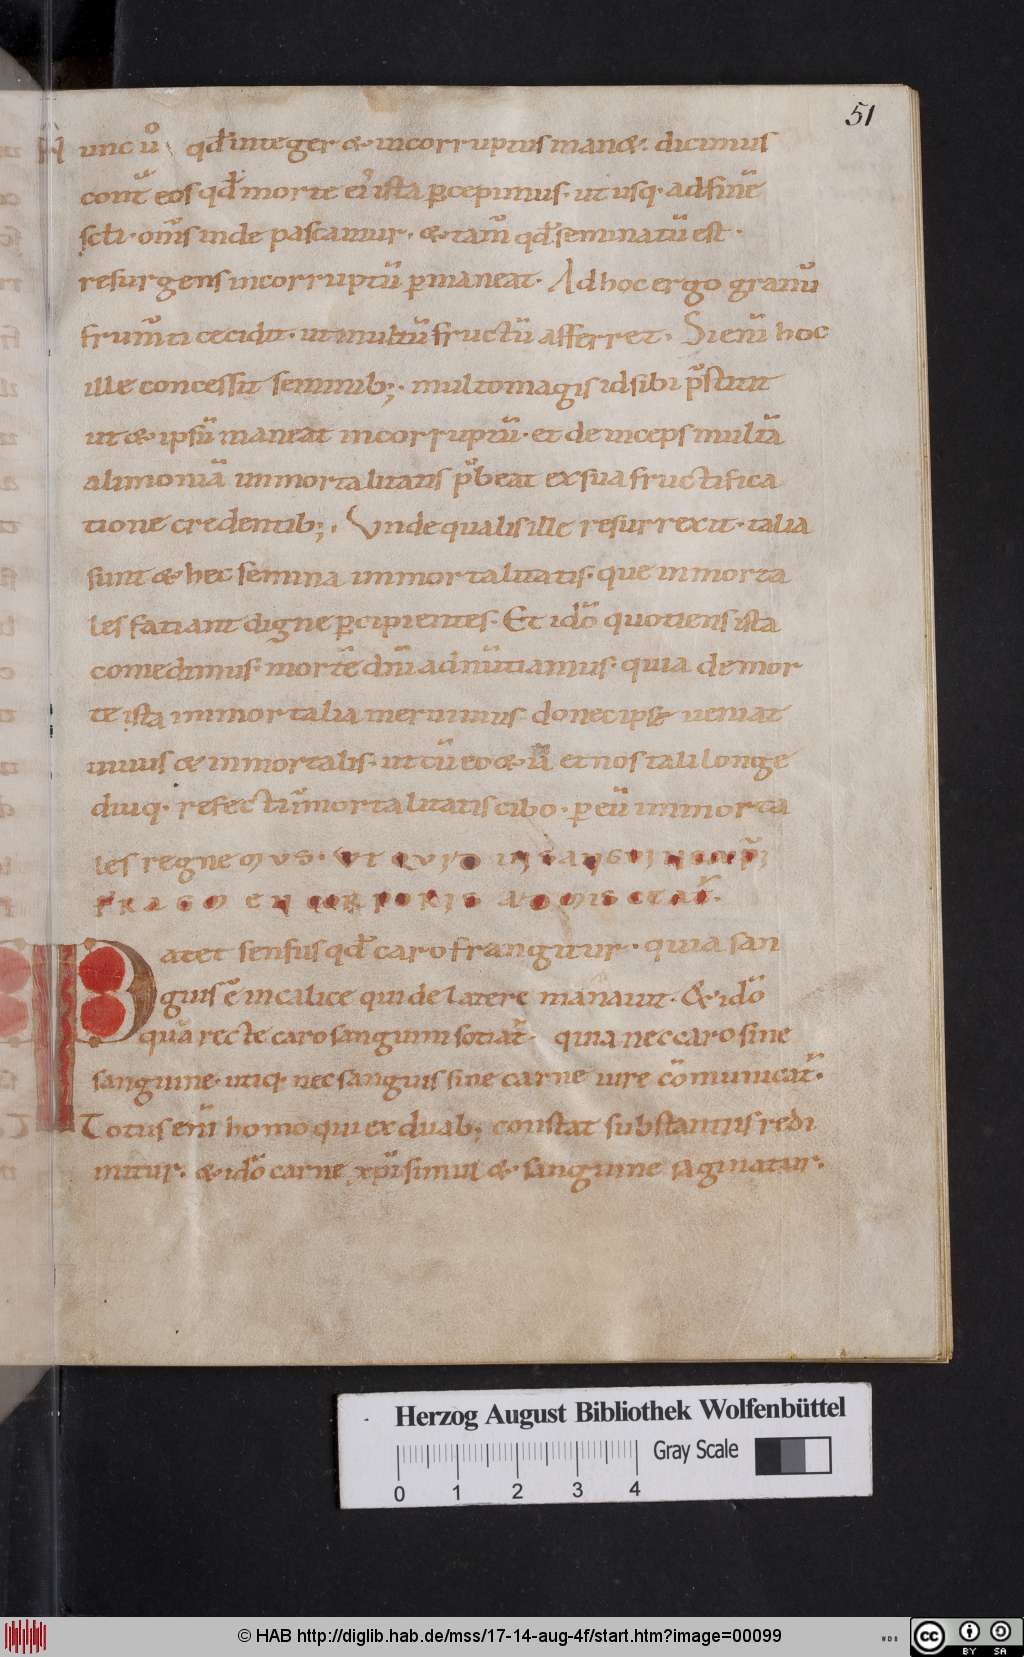 51
Nunc ů qđ integer & incorruptus man&. dicimus
cont̄ eos qđ morte ei' ista ꝑcepimus. ut usq. ad finē
scl̄i. om̄s inde pascamur. & tam̄ qđ seminatū est.
resurgens incorruptū ꝑmaneat. Ad hoc ergo granū
frum̄ti cecidit. ut multū fructū afferret. Si eni̅ hoc
ille concessit seminib;. multo magis id sibi p̄stitit
ut & ipsū maneat incorruptū. et deinceps multā
alimoniā immortalitatis p̄beat ex sua fructifica
tione credentib;. Vnde qualis ille resurrexit. talia
sunt & hec semina immortalitatis. que inmorta
les fatiant digne ꝑcipientes. Et idō quotiens ista
comedimus. mortē dn̄i adnūtiamus. quia de mor
te ista immortalia meruimus donec ipse ueniat
uiuus & inmortalis. ut cū eo & et nos tali longe
diuq. refecti mortalitatis cibo. ꝑ eū immorta
les regnemus. VT QVID IN SANGVINE
FRAGMEN CORPORIS ADMISCEAT̄.
Patet sensus qđ caro frangitur. quia san
guis ē in calice qui de latere manauit. & idō
quā recte caro sanguini sotiat̄. quia nec caro sine
sanguine. utiq. nec sanguis sine carne iure cōmunicat̄.
Totus eni̅ homo qui ex duab; constat substantiis redi
mitur. & idō carne xp̄i simul & sanguine saginatur.
Herzog August Bibliothek Wolfenbüttel
Gray Scale
0 1 2 3 4
© HAB http://diglib.hab.de/mss/17-14-aug-4f/start.htm?image=00099
WDB
cc BY SA